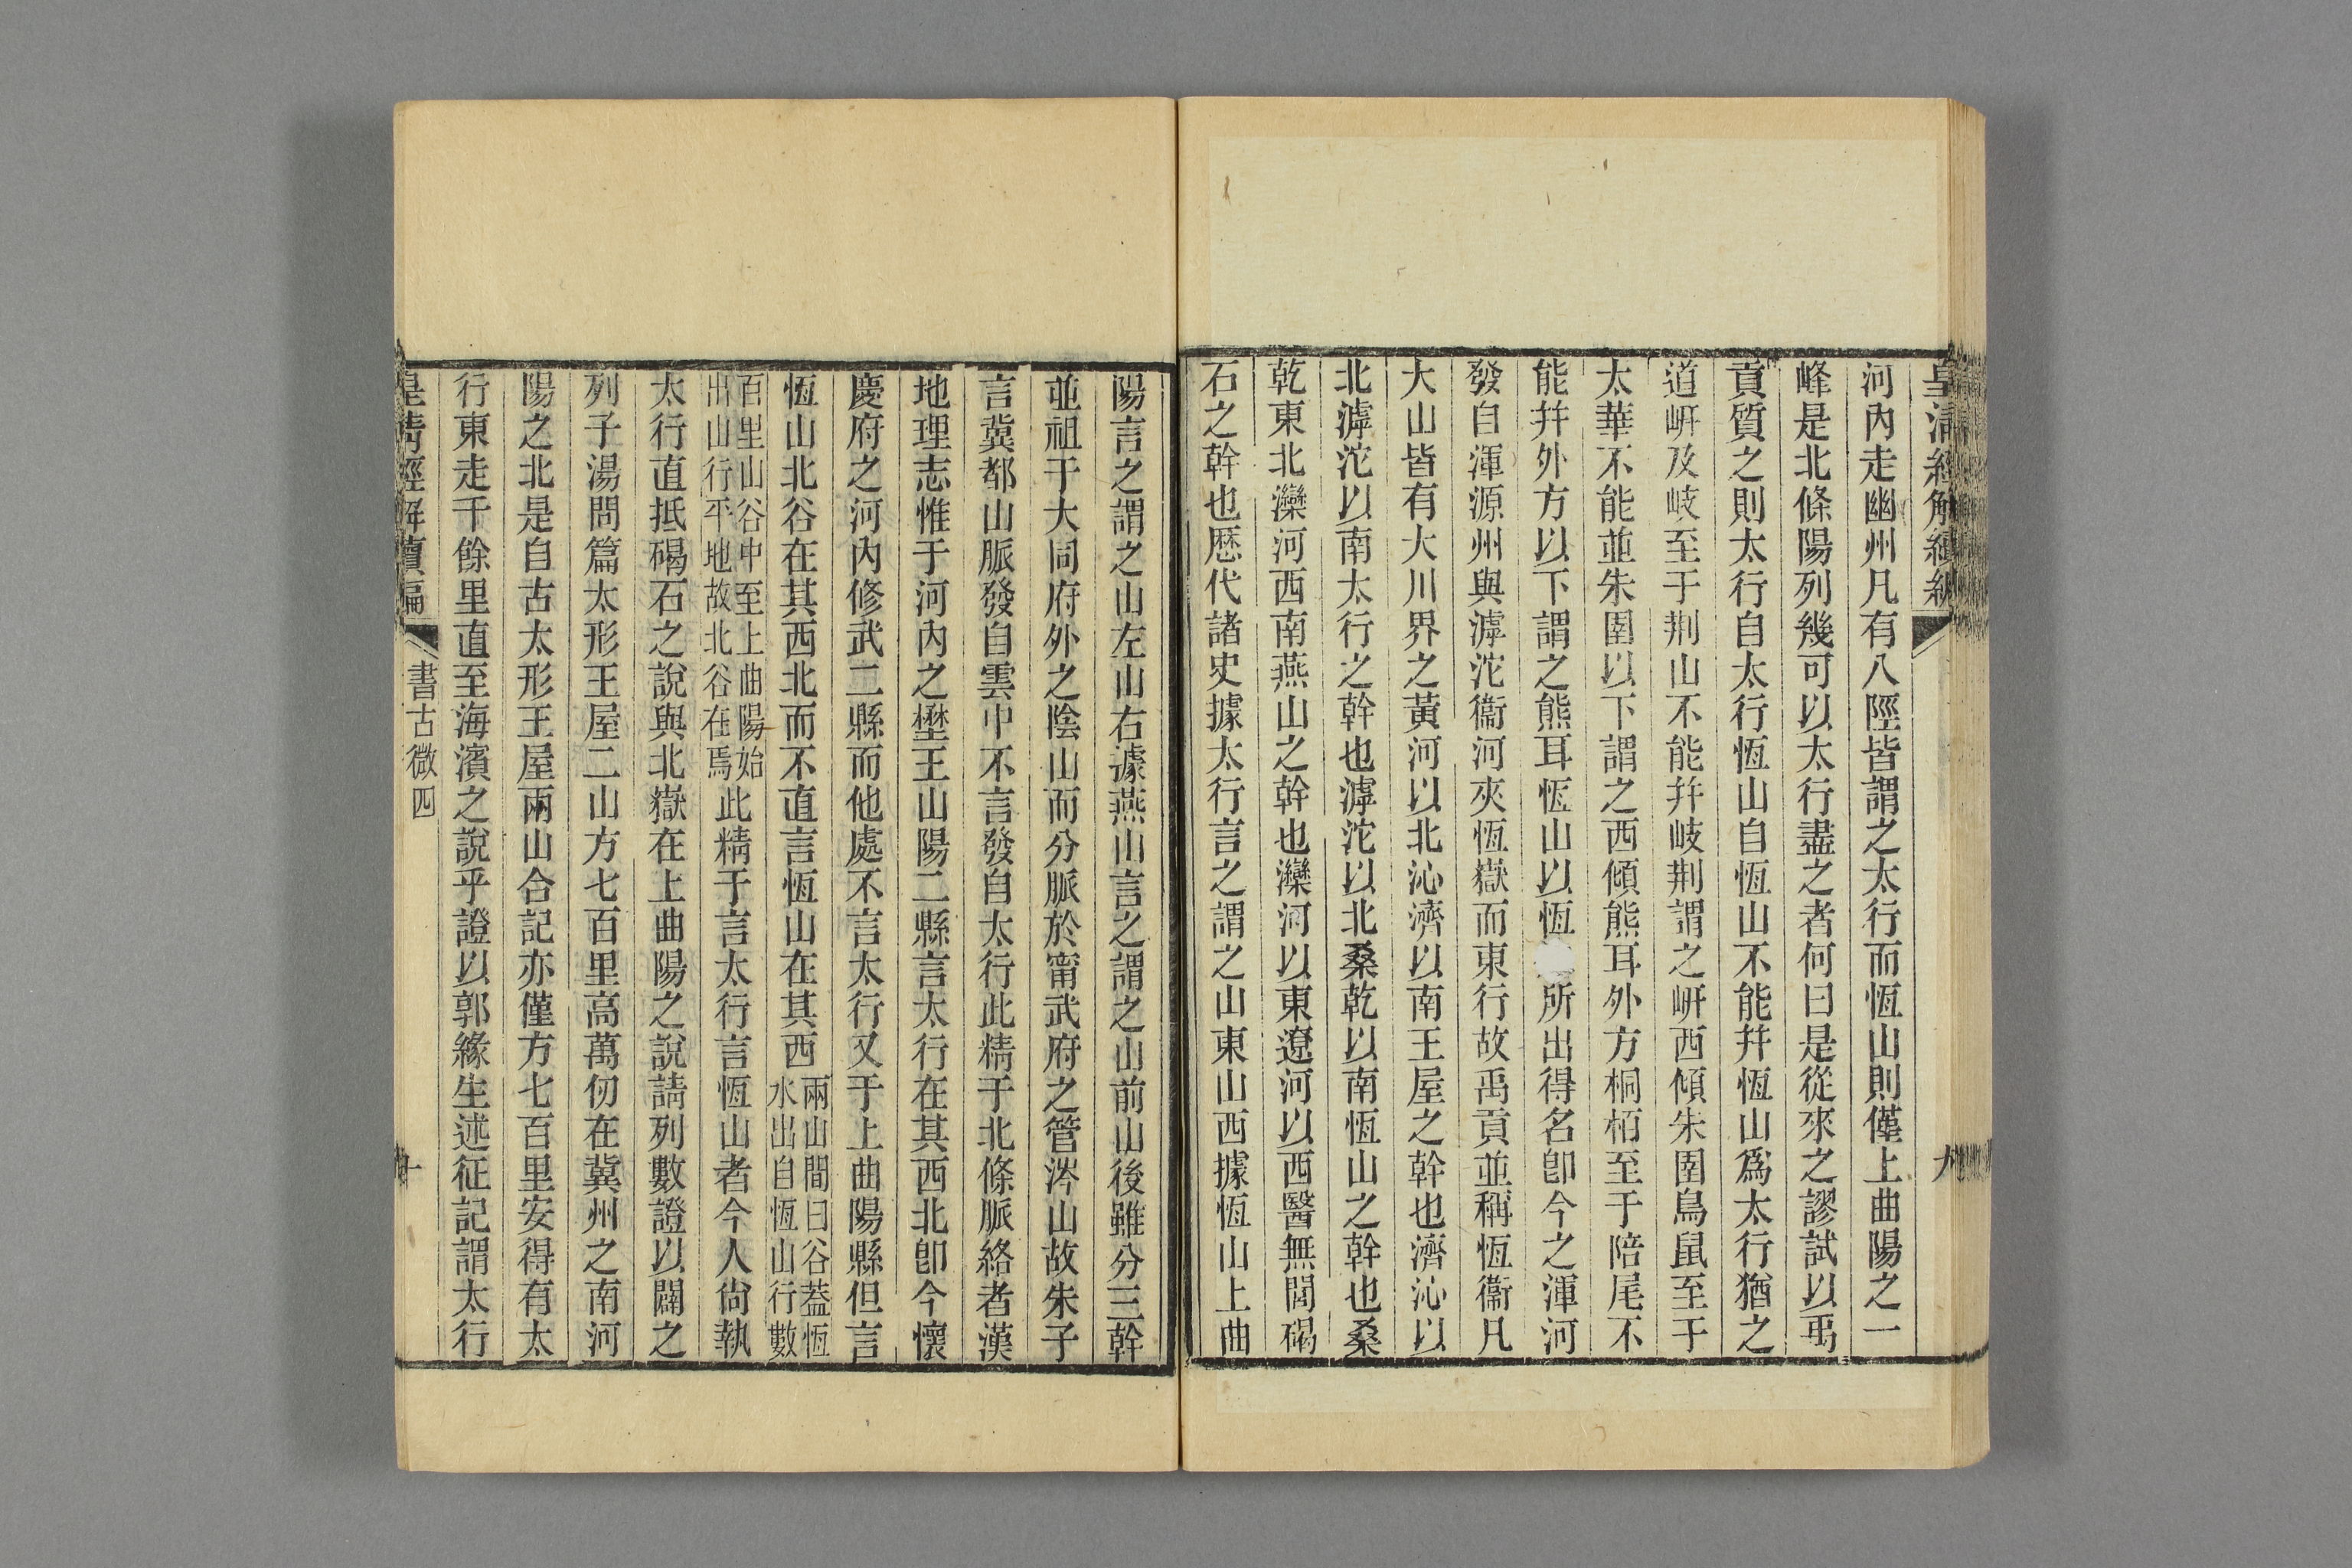 皇清經解續編
九
河內走幽州凡有八陘皆謂之太行而恆山則僅上曲陽之一
峰是北條陽列幾可以太行盡之者何曰是從來之謬試以禹
貢質之則太行自太行恆山自恆山不能幷恆山爲太行猶之
道岍及岐至于荆山不能幷岐荆謂之岍西傾朱圉鳥鼠至于
太華不能並朱圉以下謂之西傾熊耳外方桐栢至于陪尾不
能幷外方以下謂之熊耳恆山以恆所出得名卽今之渾河
發自渾源州與滹沱衞河夾恆嶽而東行故禹貢並稱恆衞凡
大山皆有大川界之黃河以北沁濟以南王屋之幹也濟沁以
北滹沱以南太行之幹也滹沱以北桑乾以南恆山之幹也桑
乾東北灤河西南燕山之幹也灤河以東遼河以西醫無閭碣
石之幹也厯代諸史據太行言之謂之山東山西據恆山上曲
陽言之謂之山左山右據燕山言之謂之山前山後雖分三幹
並祖于大同府外之陰山而分脈於甯武府之管涔山故朱子
言冀都山脈發自雲中不言發自太行此精于北條脈絡者漢
地理志惟于河內之壄王山陽二縣言太行在其西北卽今懷
慶府之河內修武二縣而他處不言太行又于上曲陽縣但言
恆山北谷在其西北而不直言恆山在其西兩山間曰谷蓋恆
水出自恆山行數
百里山谷中至上曲陽始
出山行平地故北谷在焉此精于言太行言恆山者今人尙執
太行直抵碣石之說與北嶽在上曲陽之說請列數證以闢之
列子湯問篇太形王屋二山方七百里高萬仞在冀州之南河
陽之北是自古太形王屋兩山合記亦僅方七百里安得有太
行東走千餘里直至海濱之說乎證以郭緣生述征記謂太行
皇清經解續編
書古微四
十